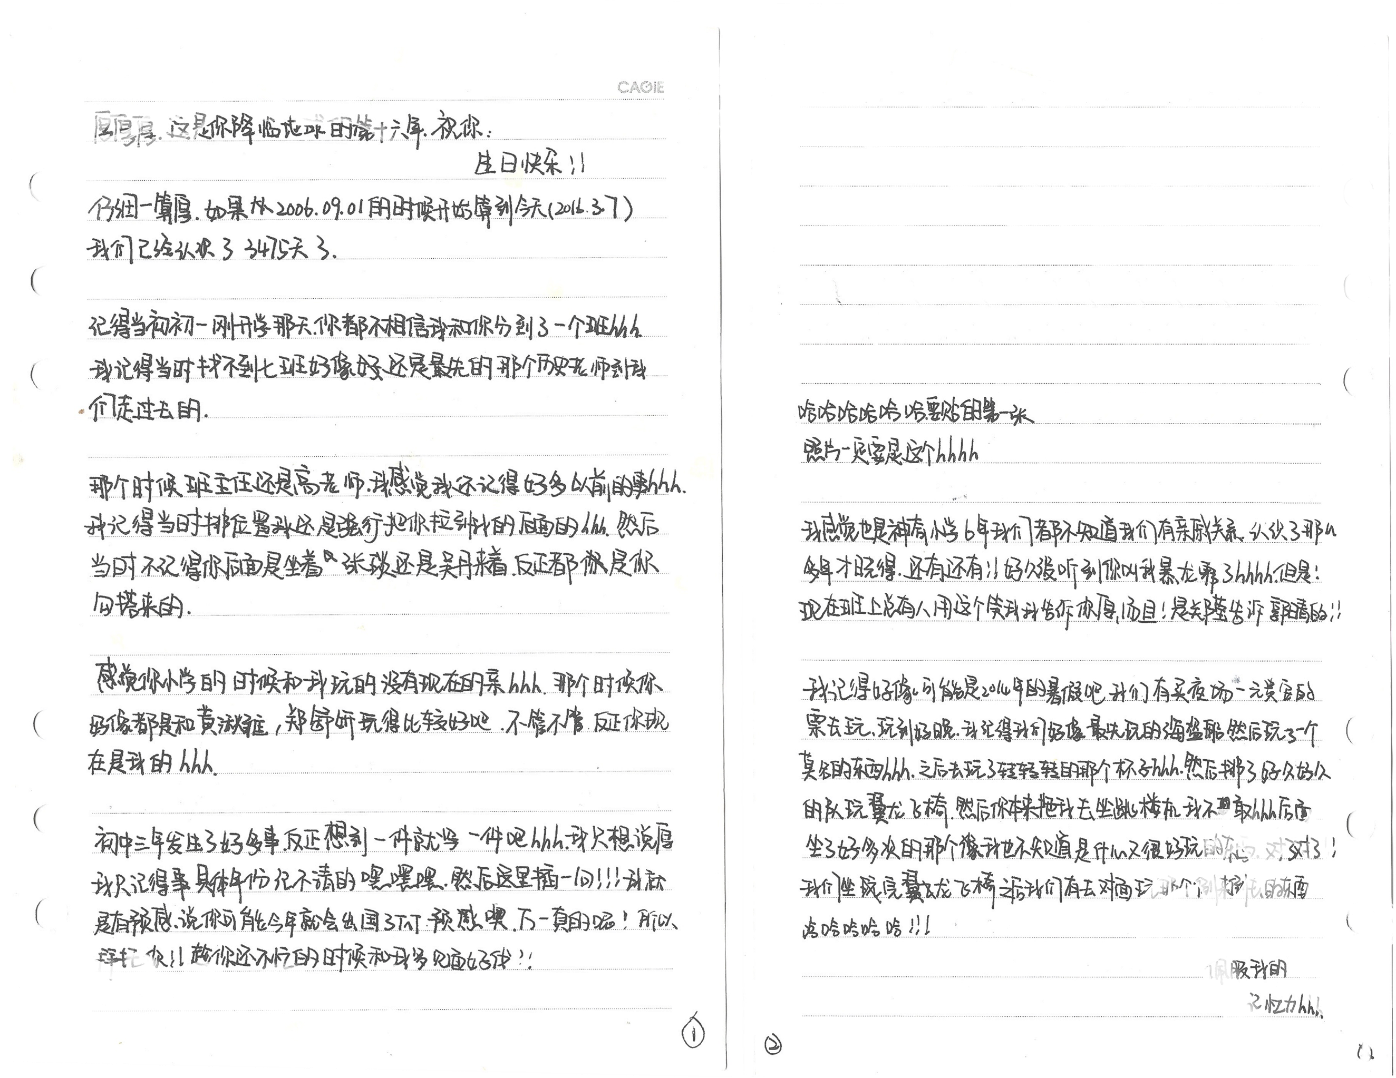 CAGIE
厚厚厚.这是你降临地球的第十六年.祝你:
生日快乐!!
仔细一算厚.如果从2006.09.01的时候开始算到今天(2016.3.7)
我们已经认识了3475天了.
记得当初初一刚开学那天.你都不相信我和你分到了一个班hhh.
我记得当时找不到七班好像 还是最先的那个历史老师到我
们走过去的.
那个时候班主任还是高老师.我感觉我还记得好多以前的事hhh.
我记得当时排位置我还是强行把你拉到我的后面的hhh.然后
当时不记得你后面是坐着 张 还是吴丹来着.反正都 是你
勾搭来的.
感觉你小学的时候和我玩的没有现在的亲hhh.那个时候你
好像都是和黄淑 ,郑舒妍玩得比较好吧.不管不管.反正你现
在是我的hhh.
初中三年发生了好多事.反正想到一件就写一件吧hhh.我只想说厚
我只记得事具体年份记不清的嘿嘿嘿.然后这里插一句!!!我就
是有预感.说你可能今年就会出国了TAT.预感噢.万一真的呢!所以
拜托你!!趁你还不忙的时候和我多见面好伐!!
①
哈哈哈哈哈哈要贴的第一张
照片一定要是这个hhhh
我感觉也是神奇.小学6年我们都不知道我们有亲戚关系.认识了那么
多年才晓得.还有还有!!好久没听到你叫我暴龙 了hhhh.但是!
现在班上总有人用这个笑我我告诉你厚,而且!是郑莹告诉郭晴的!!
我记得好像可能是2014年的暑假吧.我们有买夜场一元 的
票去玩.玩到好晚.我记得我们好像最先玩的海盗船.然后玩了一个
莫名的东西hhh.之后去玩了转转转的那个杯子hhh.然后排了好久好久
的队玩翼龙飞椅.然后你本来拖我去坐跳楼机.我不敢hhh后面
坐了好多次的那个像我也不知道是什么又很好玩的 .对,对了!
我们坐 完翼龙飞椅之后我们有去对面玩那个 的东西
哈哈哈哈哈!!!
佩服我的
记忆力hhh.
②